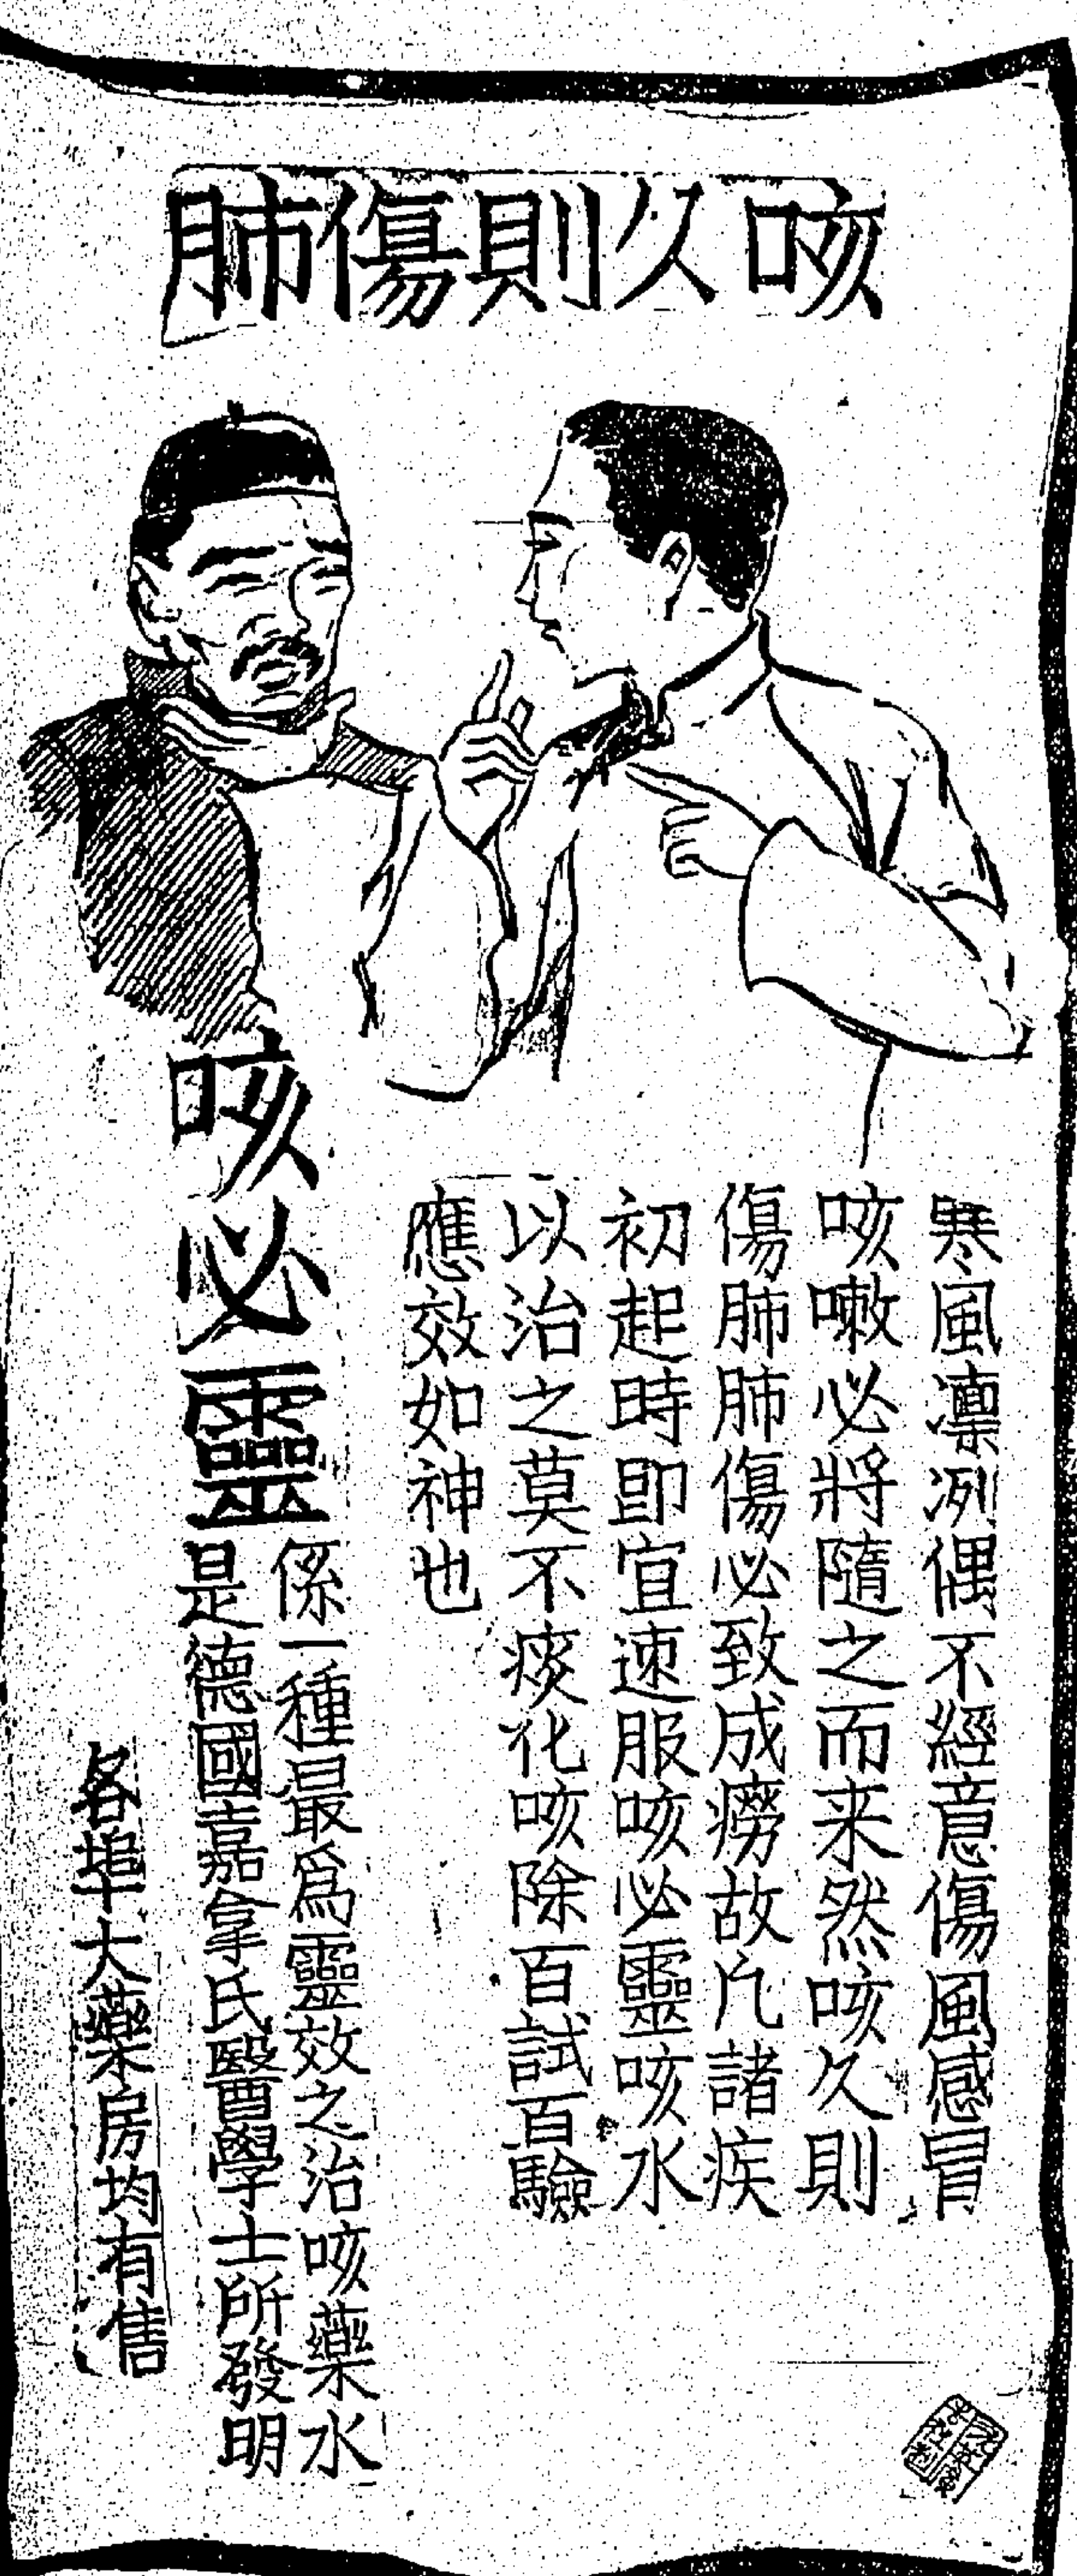 咳久則傷肺
寒風凛冽偶不經意傷風感冒
咳嗽必將隨之而来然咳久則
傷肺肺傷必致成癆故凢諸疾
初起時即宜速服咳必靈咳水
以治之莫不痰化咳除百試百驗
應效如神也
咳必靈
係一種最爲靈效之治咳藥水
是德國嘉拿氏醫學士所發明
各埠大藥房均有售